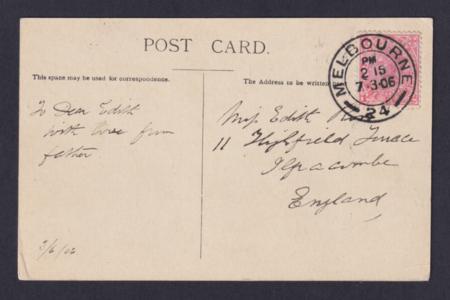 POST CARD.
This space may be used for correspondence.
The Address to be written
To Dear Edith
with love from
father
Miss Edith
11 Highfield Terrace
Ilfracombe
England
MELBOURNE
PM
2 15
7·3·06
24